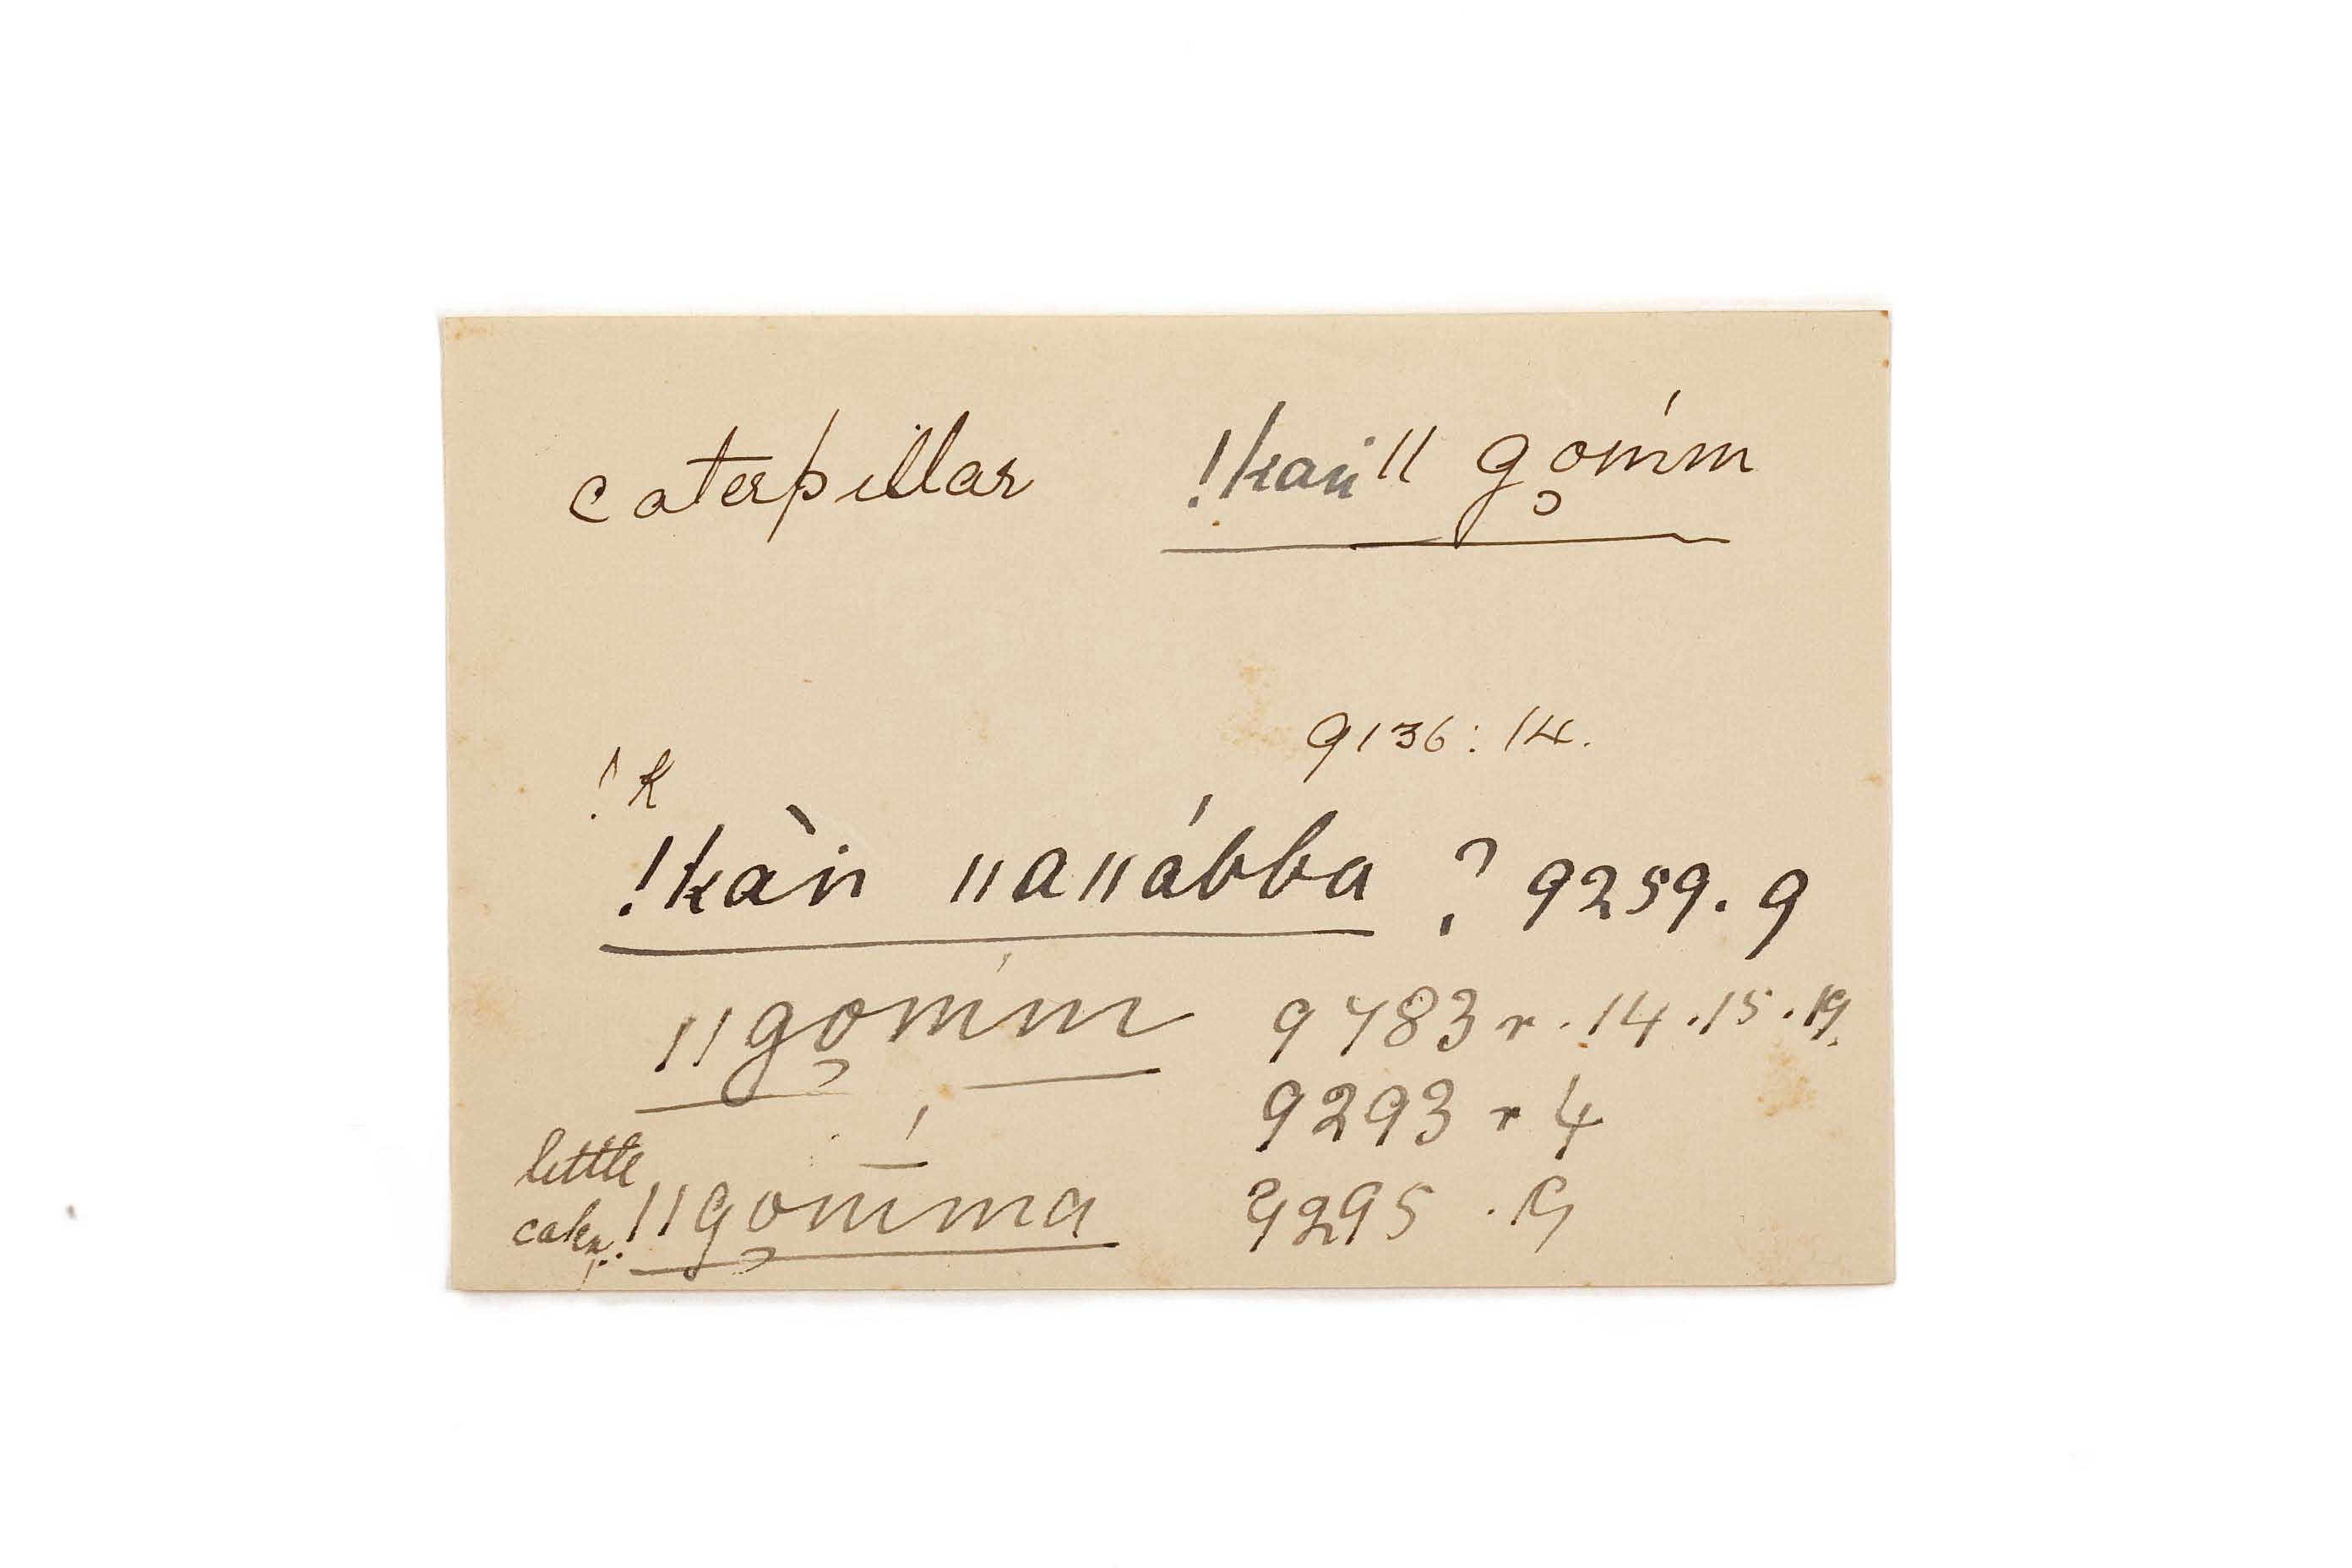 caterpillar !kan ǁ go̜ḿm
9136:14.
!k
!kàn ǁaǁábba ? 9259.9
ǁgo̜ḿm 9483 r.14.15.19.
9293 r 4
little
ǁgo̜m̄́ma 9295 .19